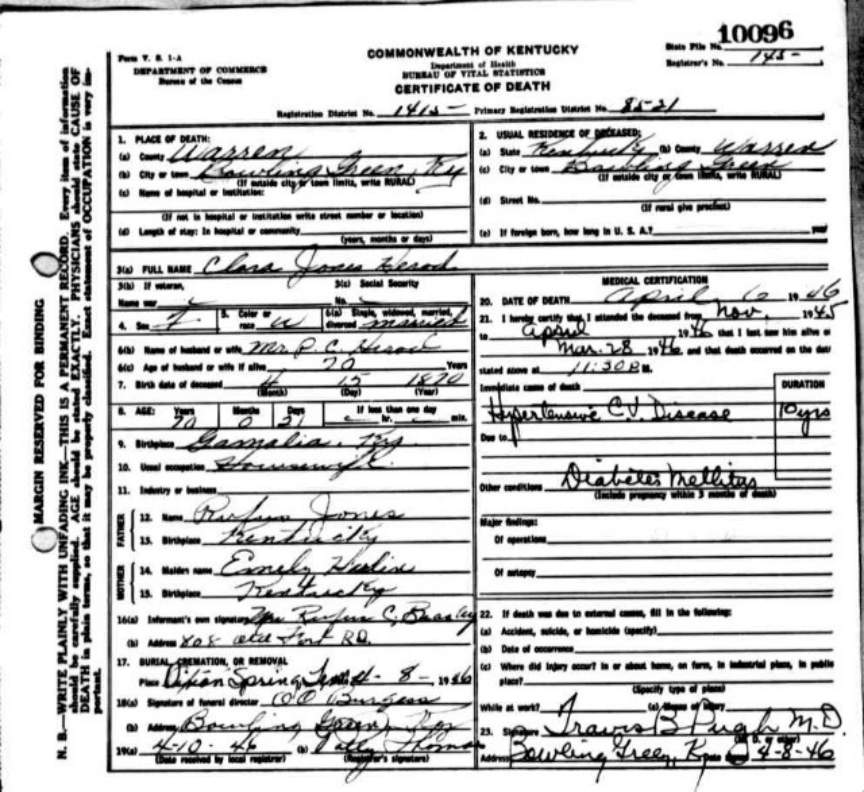 10096
Form V. S. 1-A
DEPARTMENT OF COMMERCE
Bureau of the Census
COMMONWEALTH OF KENTUCKY
Department of Health
BUREAU OF VITAL STATISTICS
CERTIFICATE OF DEATH
State File No.
Registrar's No. 145-
Registration District No. 1415- Primary Registration District No. 85-21
MARGIN RESERVED FOR BINDING
N. B.—WRITE PLAINLY WITH UNFADING INK—THIS IS A PERMANENT RECORD. Every item of information
should be carefully supplied. AGE should be stated EXACTLY. PHYSICIANS should state CAUSE OF
DEATH in plain terms, so that it may be properly classified. Exact statement of OCCUPATION is very im-
portant.
1. PLACE OF DEATH:
(a) County Warren
(b) City or town Bowling Green, Ky
(If outside city or town limits, write RURAL)
(c) Name of hospital or institution:
(If not in hospital or institution write street number or location)
(d) Length of stay: In hospital or community
(years, months or days)
2. USUAL RESIDENCE OF DECEASED:
(a) State Kentucky (b) County Warren
(c) City or town Bowling Green
(If outside city or town limits, write RURAL)
(d) Street No.
(If rural give precinct)
(e) If foreign born, how long in U. S. A.? year
3(a) FULL NAME Clara Jones
3(b) If veteran,
Name war
3(c) Social Security
No.
4. Sex F 5. Color or race W 6(a) Single, widowed, married, divorced married
6(b) Name of husband or wife Mr. P. C.
6(c) Age of husband or wife if alive 70 Years
7. Birth date of deceased 4 15 1870
(Month) (Day) (Year)
8. AGE: Years Months Days If less than one day
70 0 21 hr. min.
9. Birthplace Gamalia, Ky
10. Usual occupation Housewife
11. Industry or business
FATHER
12. Name Rufus Jones
13. Birthplace Kentucky
MOTHER
14. Maiden name Emily
15. Birthplace Kentucky
16(a) Informant's own signature Mrs Rufus C,
(b) Address 808 Old Fort RD.
17. BURIAL, CREMATION, OR REMOVAL
Place Dixon Spring, Tenn 4-8-1946
18(a) Signature of funeral director OO Burgess
(b) Address Bowling Green, Ky
19(a) 4-10-46 (b) Patty Thomas
(Date received by local registrar) (Registrar's signature)
MEDICAL CERTIFICATION
20. DATE OF DEATH April 6 1946
21. I hereby certify that I attended the deceased from Nov. 1945
to April 1946 that I last saw him alive on
Mar. 28 1946 and that death occurred on the date
stated above at 11:30 P.M.
Immediate cause of death
DURATION
Hypertensive C.V. Disease 10 yrs
Due to
Other conditions Diabetes Mellitus
(Include pregnancy within 3 months of death)
Major findings:
Of operations
Of autopsy
22. If death was due to external causes, fill in the following:
(a) Accident, suicide, or homicide (specify)
(b) Date of occurrence
(c) Where did injury occur? In or about home, on farm, in industrial place, in public
place?
(Specify type of place)
While at work? (e) Means of injury
23. Signature Travis B Pugh M.D.
Address Bowling Green, Ky Date 4-8-46